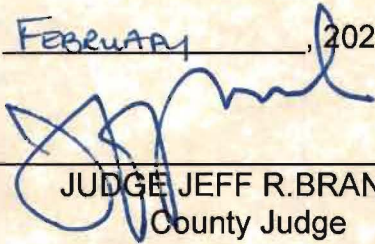 FEBRUARY, 202
JUDGE JEFF R.BRAN
County Judge